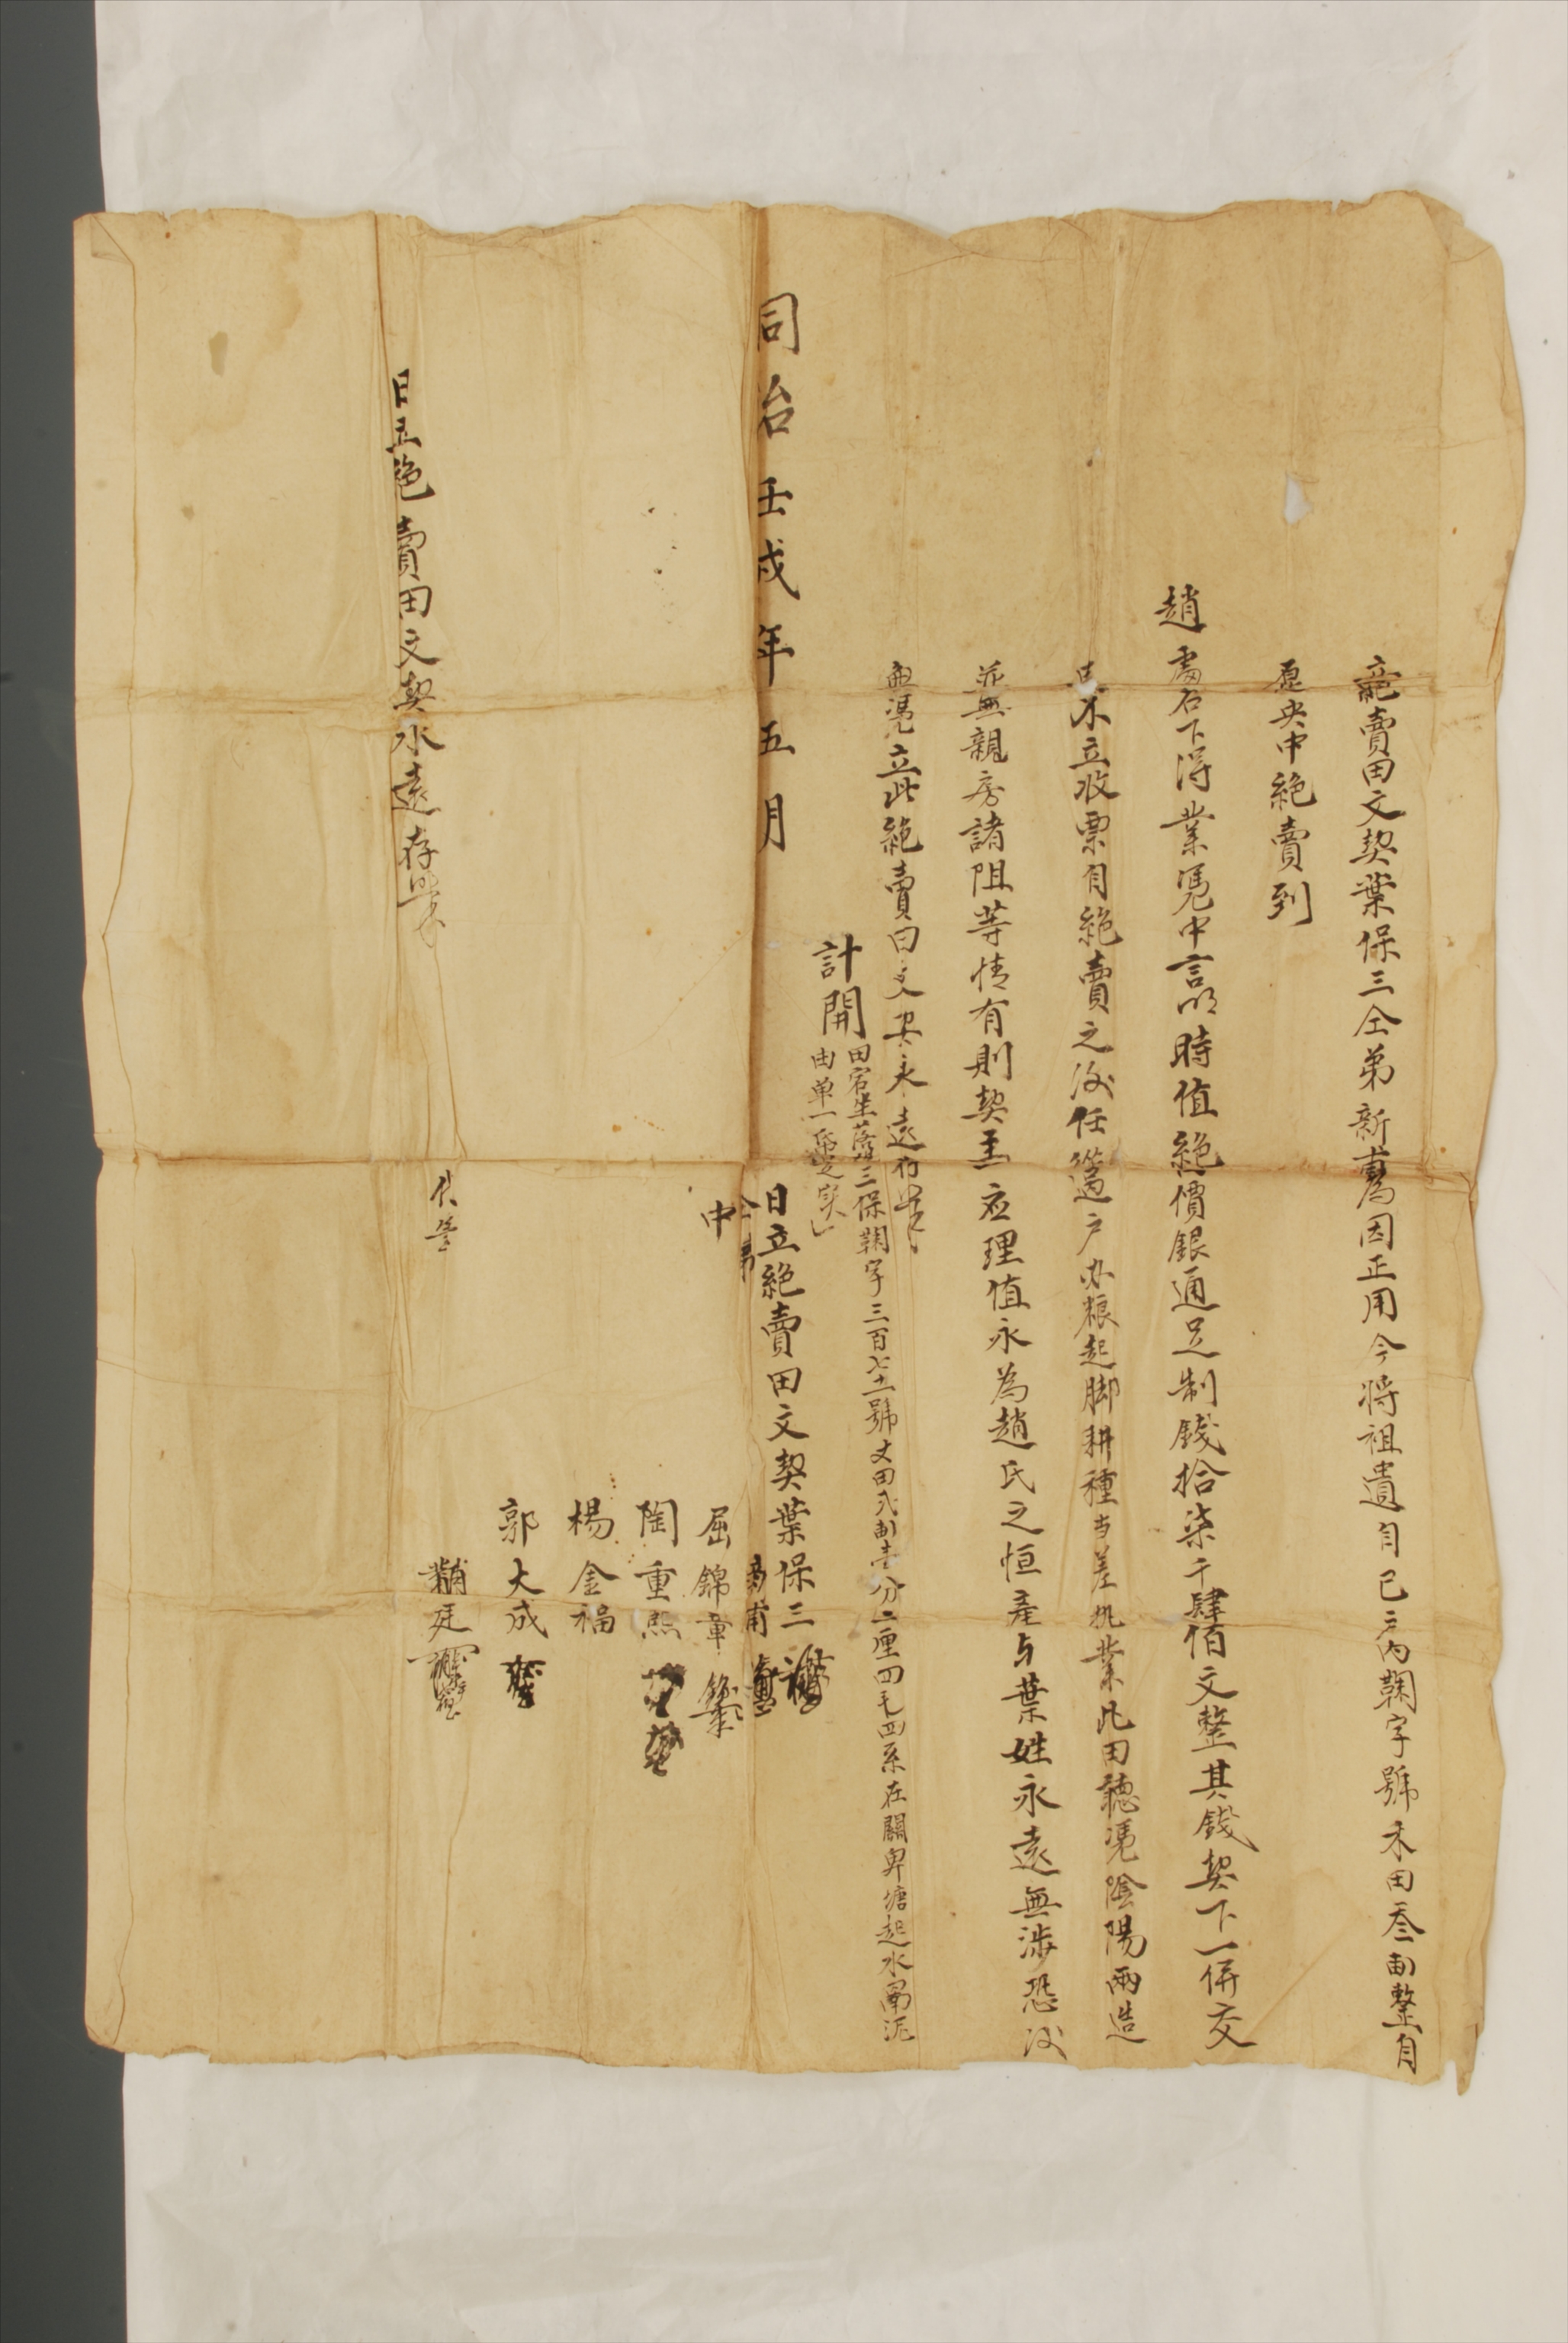 絕賣田文契葉保三仝弟新甫為因正用今將祖遺自己户内鞠字號禾田叁畝整自
愿央中絕賣到
趙處名下得業憑中言明時值絕價銀通足制錢拾柒千肆佰文整其錢契下一併交
不立收票自絕賣之後任憑過户办粮起脚耕種当差执業此田聽憑陰陽兩造
並無親房諸阻等情有則契主应理值永為趙氏之恒產与葉姓永遠無涉恐後
無憑立此絕賣田文契永遠存照
計開 田宕坐落三保鞠字三百七十一號丈田弍畝壹分二厘四毛四系在關卑塘起水罱泥
由单一紙
同治壬戌年五月 日立絕賣田文契葉保三
仝弟 新甫
中 屈錦章
陶重熙
楊金福
郭大成
代筆 黼廷
日立絕賣田文契永遠存照